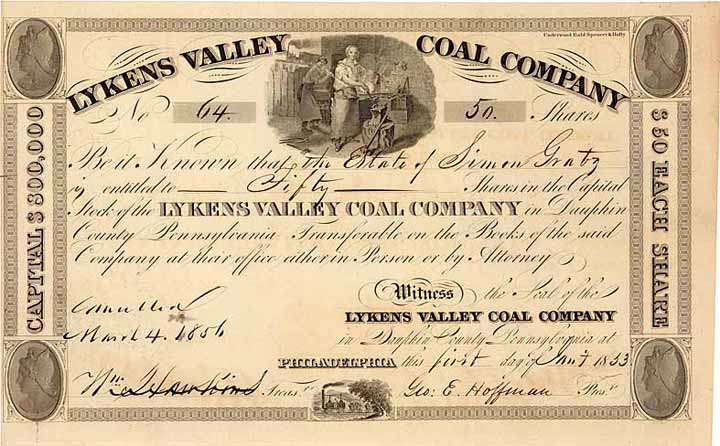 Underwood Bald Spencer & Hufty
LYKENS VALLEY COAL COMPANY
No 64. 50. Shares
Be it Known that the Estate of Simon Gratz
is entitled to Fifty Shares in the Capital
Stock of the LYKENS VALLEY COAL COMPANY in Dauphin
County Pennsylvania Transferable on the Books of the said
Company at their office either in Person or by Attorney
Witness the Seal of the
LYKENS VALLEY COAL COMPANY
in Dauphin County Pennsylvania at
PHILADELPHIA this first day of Jany 1853
Cancelled
March 4. 1856
Wm Hawkins Treasr. Geo: E. Hoffman Prest.
CAPITAL $300,000
$50 EACH SHARE